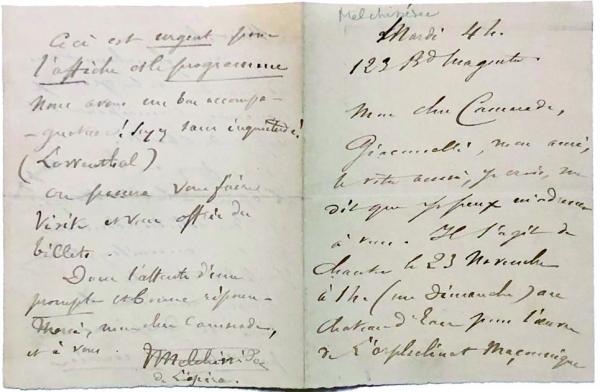 Melchissédec
Mardi 4h.
123 Bd Magenta
Mon cher Camarade,
Giacomelli, mon ami,
le votre aussi, je crois, me
dit que je peux m'adresser
à vous. Il s'agit de
chanter le 23 Novembre
à 1h (un Dimanche) au
chateau d'Eau pour l'œuvre
de L'orphelinat Maçonnique
Ceci est urgent pour
l'affiche et le programme
Nous avons un bon accompa-
-gnateur! Soyez sans inquiétude
(Lorrenthal)
on pourra vous faire
visite et vous offrir des
billets.
Dans l'attente d'une
prompte et bonne réponse
Merci, mon cher Camarade,
et à vous.
Melchissédec
de L'opéra.